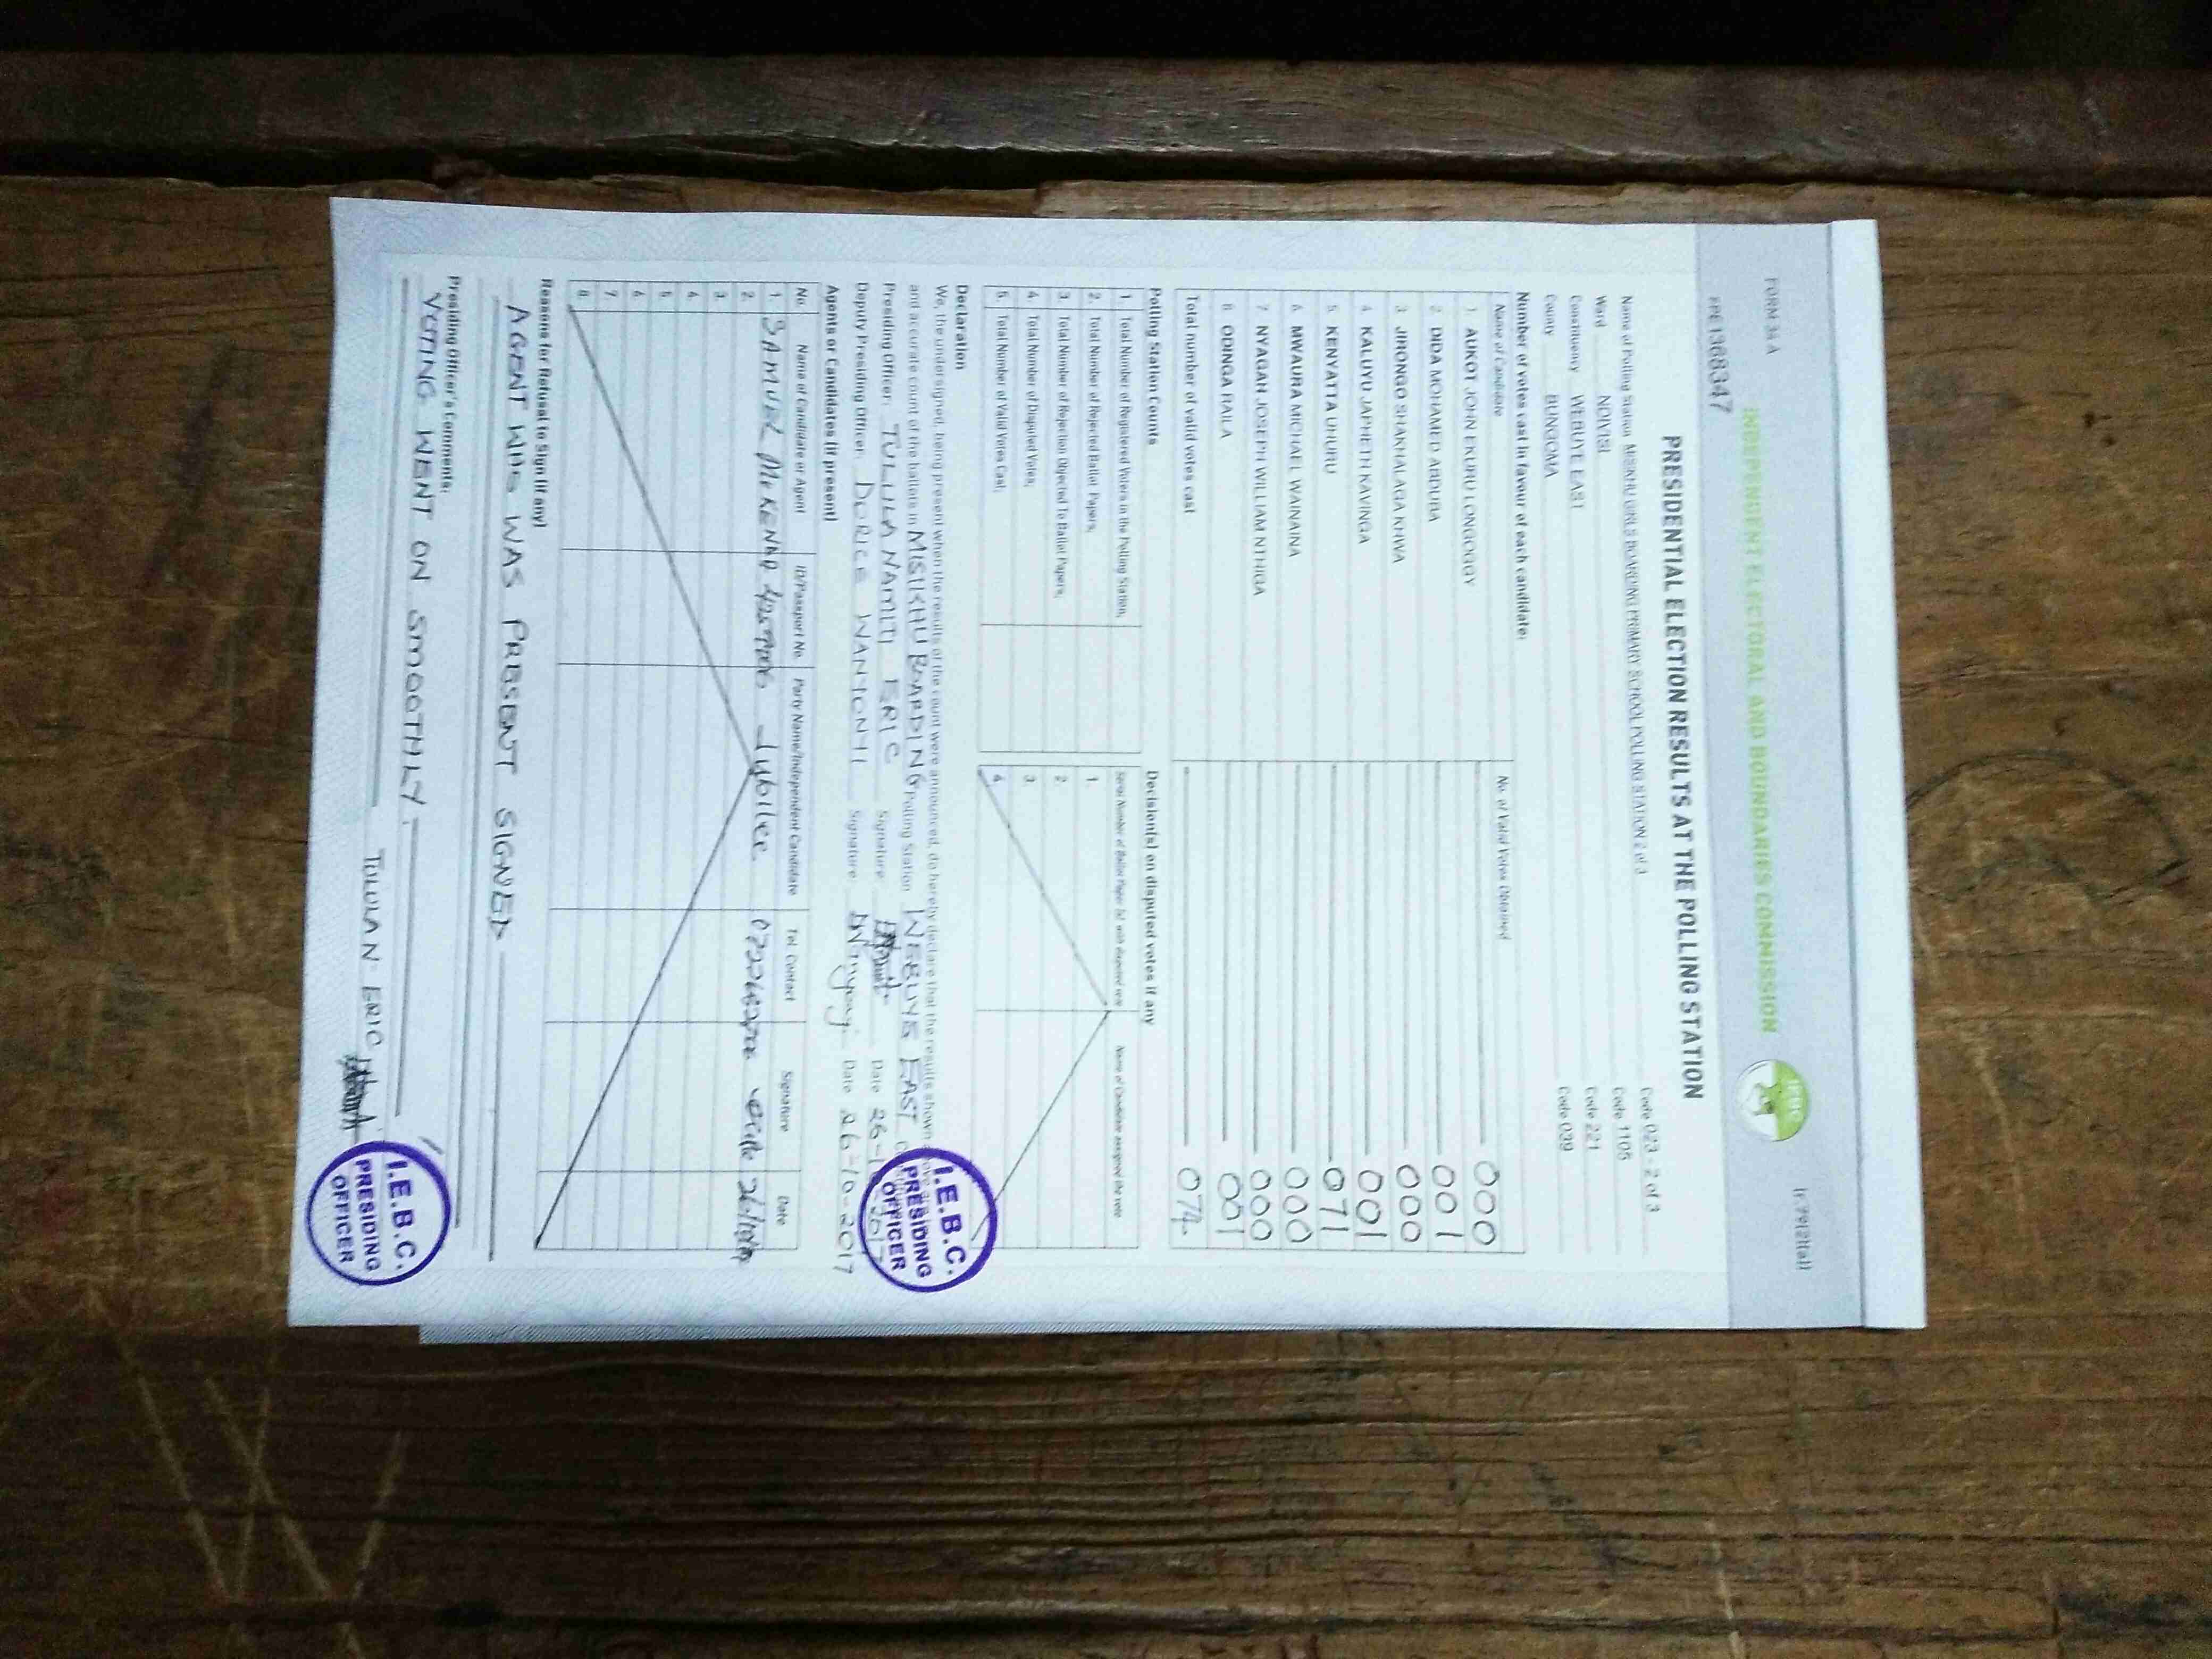 FORM 34 A
INDEPENDENT ELECTORAL AND BOUNDARIES COMMISSION
IEBC
PRESIDENTIAL ELECTION RESULTS AT THE POLLING STATION
Name of Polling Station MISIKHU GIRLS BOARDING PRIMARY SCHOOL POLLING STATION 2 of 3 Code 023 - 2 of 3
Ward NDIVISI Code 1105
Constituency WEBUYE EAST Code 221
County BUNGOMA Code 039
Number of votes cast in favour of each candidate:
Name of Candidate No. of Valid Votes Obtained
1 AUKOT JOHN EKURU LONGOGGY 000
2 DIDA MOHAMED ABDUBA 001
3 JIRONGO SHAKHALAGA KHWA 000
4 KALUYU JAPHETH KAVINGA 001
5 KENYATTA UHURU 071
6 MWAURA MICHAEL WAINAINA 000
7 NYAGAH JOSEPH WILLIAM NTHIGA 000
8 ODINGA RAILA 001
Total number of valid votes cast 074
Polling Station Counts
1. Total Number of Registered Voters in the Polling Station;
2. Total Number of Rejected Ballot Papers;
3. Total Number of Rejection Objected To Ballot Papers;
4. Total Number of Disputed Votes;
5. Total Number of Valid Votes Cast;
Decision(s) on disputed votes if any
Serial Number of Ballot Paper (s) with disputed vote Name of Candidate assigned the vote
1.
2.
3.
4.
Declaration
We, the undersigned, being present when the results of the count were announced, do hereby declare that the results shown
and accurate count of the ballots in MISIKHU BOARDING Polling Station WEBUYE EAST
Presiding Officer: TULULA NAMITI ERIC Signature Date
Deputy Presiding Officer: DORICE WANYONYI Signature Date 26-10-2017
I.E.B.C.
PRESIDING
OFFICER
Agents or Candidates (if present)
No. Name of Candidate or Agent ID/Passport No. Party Name/Independent Candidate Tel. Contact Signature Date
1. SAMUEL Jubilee
2.
3.
4.
5.
6.
7.
8.
Reasons for Refusal to Sign (if any)
AGENT WAS WAS PRESENT SIGNED
Presiding Officer's Comments:
VOTING WENT ON SMOOTHLY.
TULULA N. ERIC
I.E.B.C.
PRESIDING
OFFICER